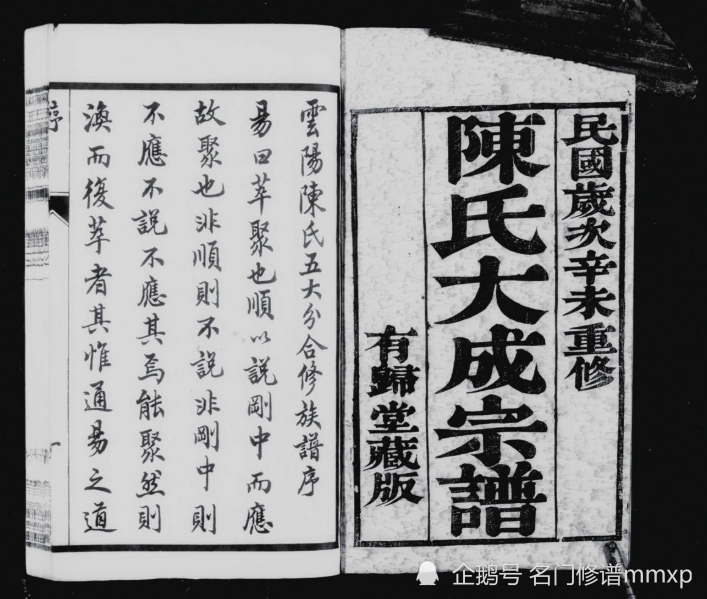 民國歲次辛未重修
陳氏大成宗譜
有歸堂藏版
雲陽陳氏五大分合修族譜序
易曰萃聚也順以說剛中而應
故聚也非順則不說非剛中則
不應不說不應其焉能聚然則
渙而復萃者其惟通易之道
序
一
企鹅号 名门修谱mmxp